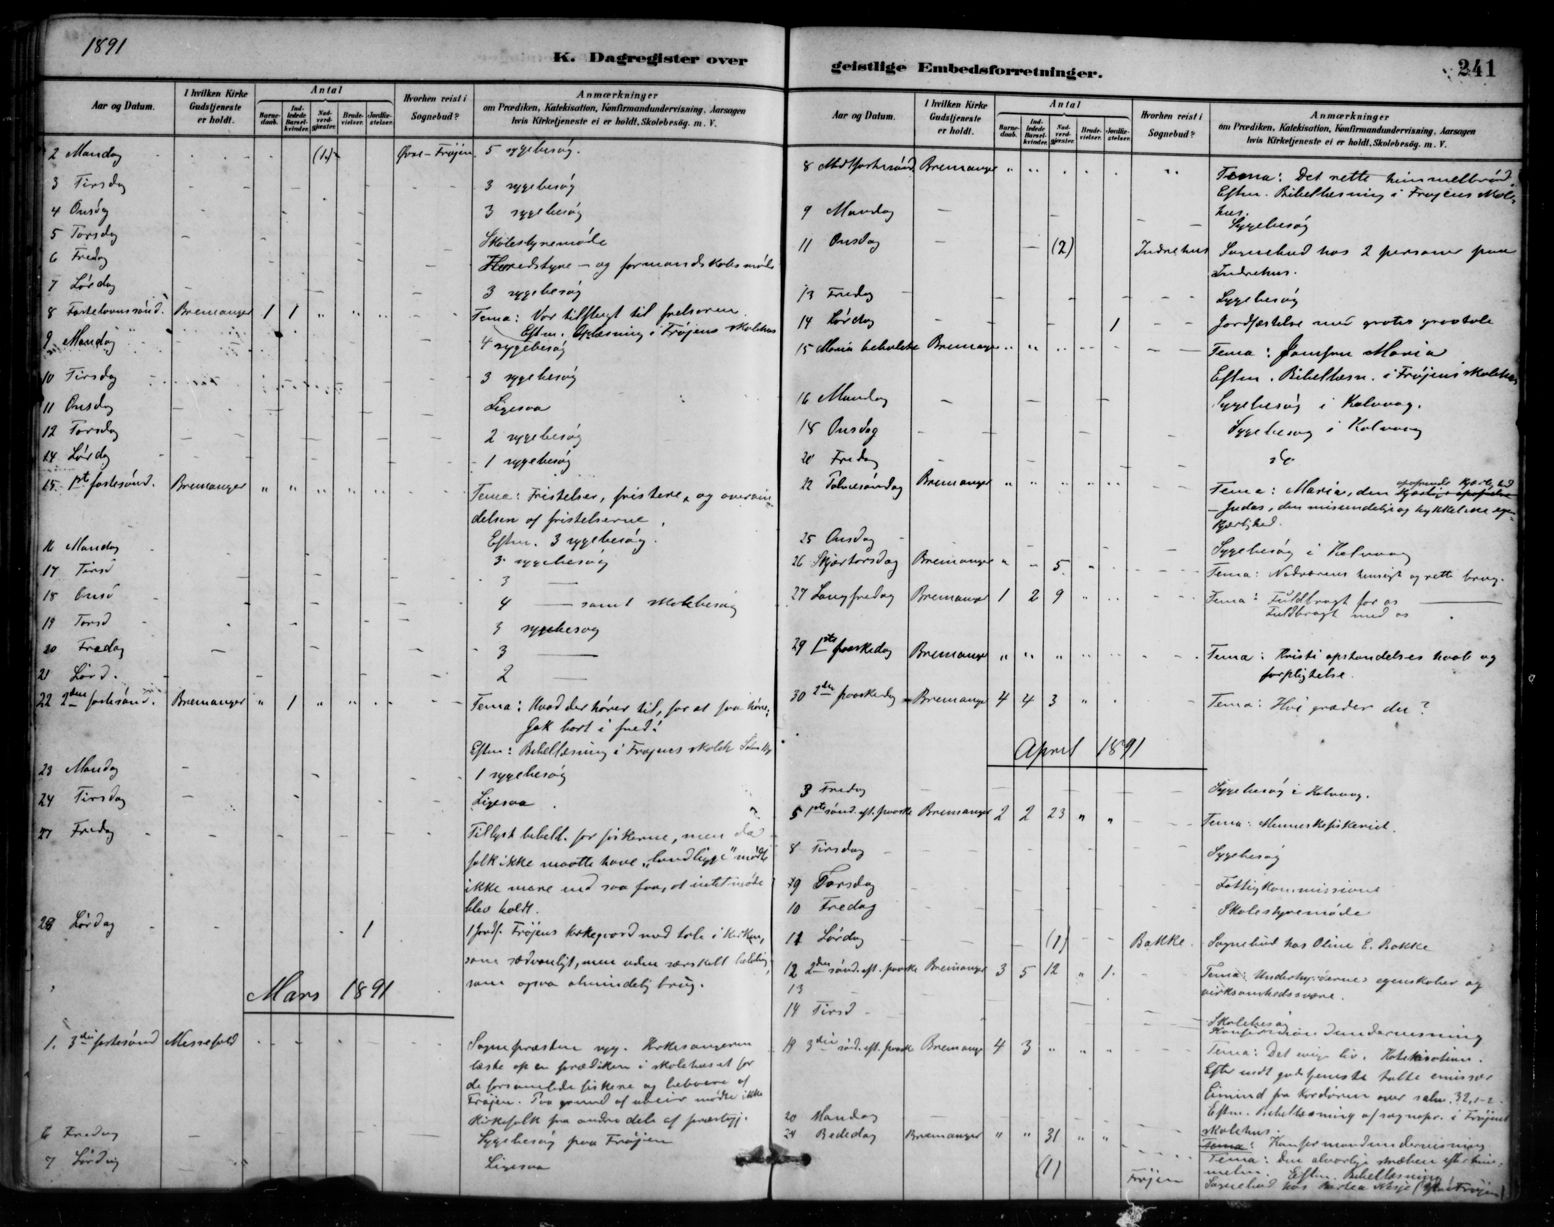 1891
K. Dagregister over
Aar og Datum.
I hvilken Kirke Gudstjeneste er holdt.
Antal
Barnedaab.
Indledede Barselkvinder.
Nadverdgjester.
Brudevielser.
Jordfæstelser.
Hvorhen reist i Sognebud?
Anmærkninger
om Prædiken, Katekisation, Konfirmandundervisning, Aarsagen
hvis Kirketjeneste ei er holdt, Skolebesøg. m. V.
2 Mandag (1) Øvre-Frøjen 5 sygebesøg.
3 Tirsdag 3 sygebesøg
4 Onsdag 3 sygebesøg
5 Torsdag Skolestyremøde
6 Fredag Heredstyre- og formandskabsmøde
7 Lørdag 3 sygebesøg
8 Fastelavnssønd. Bremanger 1 1 " " " Tema: Vor tilflugt til frelseren.
Eftm. Oplæsning i Frøjens skolehus
9 Mandag 4 sygebesøg
10 Tirsdag 3 sygebesøg
11 Onsdag Ligesaa
12 Torsdag 2 sygebesøg
14 Lørdag 1 sygebesøg
15 1ste fastesønd. Bremanger " " " " " Tema: Fristelser, fristere, og overvin-
delsen af fristelserne.
Eftm. 3 sygebesøg.
16 Mandag 3 sygebesøg
17 Tirsd 3 —
18 Onsd 4 — samt skolebesøg
19 Torsd 3 sygebesøg
20 Fredag 3 —
21 Lørd. 2 —
22 2den fastesønd. Bremanger " 1 " " " Tema: Hvad der hører til, for at faa høre:
Gak bort i fred!
Eftm: Bibellæsning i Frøjens skoleh
23 Mandag 1 sygebesøg
24 Tirsdag Ligesaa
27 Fredag Tillyst bibell. for fiskerne, men da
folk ikke maatte have "landligge" mødte
ikke mere end saa faa, at intet møde
blev holdt.
28 Lørdag 1 1 Jordf. Frøjens kirkegaard med tale i kirken,
som sædvanligt, men uden særskilt betaling,
som ogsaa almindelig brug.
Mars 1891
1. 3die fastesønd Messefald Sognepræsten syg. Kirkesangeren
læste op en prædiken i skolehuset for
de forsamlede fiskere og beboere af
Frøjen. Paa grund af uveir mødte ikke
kirkefolk fra andre dele af præstegj.
6 Fredag Sygebesøg paa Frøjen
7 Lørdag Ligesaa
geistlige Embedsforretninger.
241
Aar og Datum.
I hvilken Kirke Gudstjeneste er holdt.
Antal
Barnedaab.
Indledede Barselkvinder.
Nadverdgjester.
Brudevielser.
Jordfæstelser.
Hvorhen reist i Sognebud?
Anmærkninger
om Prædiken, Katekisation, Konfirmandundervisning, Aarsagen
hvis Kirketjeneste ei er holdt, Skolebesøg. m. V.
8 Midtfastesønd. Bremanger " " " Tema: Det rette himmelbrød.
Eftm. Bibellæsning i Frøjens skole-
hus.
9 Mandag Sygebesøg
11 Onsdag (2) Indrehus Sognebud hos 2 personer paa
Indrehus.
13 Fredag Sygebesøg
14 Lørdag 1 Jordfæstelse med gratis gravtale
15 Maria bebudelse Bremanger " " " Tema: Jomfru Maria
Eftm. Bibellæsn. i Frøjens skolehus
16 Mandag Sygebesøg i Kalvaag.
18 Onsdag Sygebesøg i Kalvaag
20 Fredag do
22 Palmesøndag Bremanger Tema: Maria, den opofrende kjærlighed
— Judas, den misundelige og hykkelske egen-
kjærlighed.
25 Onsdag Sygebesøg i Kalvaag
26 Skjærtorsdag Bremanger " 5 " Tema: Nadverens hensigt og rette brug.
27 Langfredag Bremanger 1 2 9 " Tema: Fuldbragt for os —
Fuldbragt med os
29 1ste paaskedag Bremanger " " " " Tema: Kristi opstandelses haab og
forpligtelse.
30 2den paaskedag Bremanger 4 4 3 " Tema: Hvi græder du?
April 1891
3 Fredag Sygebesøg i Kalvaag.
5 1ste sønd. eft. paaske Bremanger 2 2 23 " " Tema: Menneskefiskeriet.
8 Tirsdag Sygebesøg
9 Torsdag Fattigkommissione
10 Fredag Skolestyremøde
11 Lørdag (1) Bakke. Sognebud hos Oline E. Bakke
12 2den sønd. eft. paaske Bremanger 3 5 12 " 1. Tema: Underhyrdernes egenskaber og
virksomhedssvære.
13
14 Tirsd Skolebesøg
Konfirmationsundervisning
19 3die sød. eft. paaske Bremanger 4 3 " " " Tema: Det evige liv. Katekisation.
Efter endt gudstjeneste talte emissær
Eimind fra kordøren over salm. 32,1-2.
Eftm. Bibellæsning af sognepr. i Frøjens
skolehus.
20 Mandag Tema: Konfirmandundervisning
24 Bededag Bremanger " " 31 " " Tema: Den alvorlige stræben efter him-
melen. Eftm. Bibellæsning
(1) Frøjen Sognebud hos